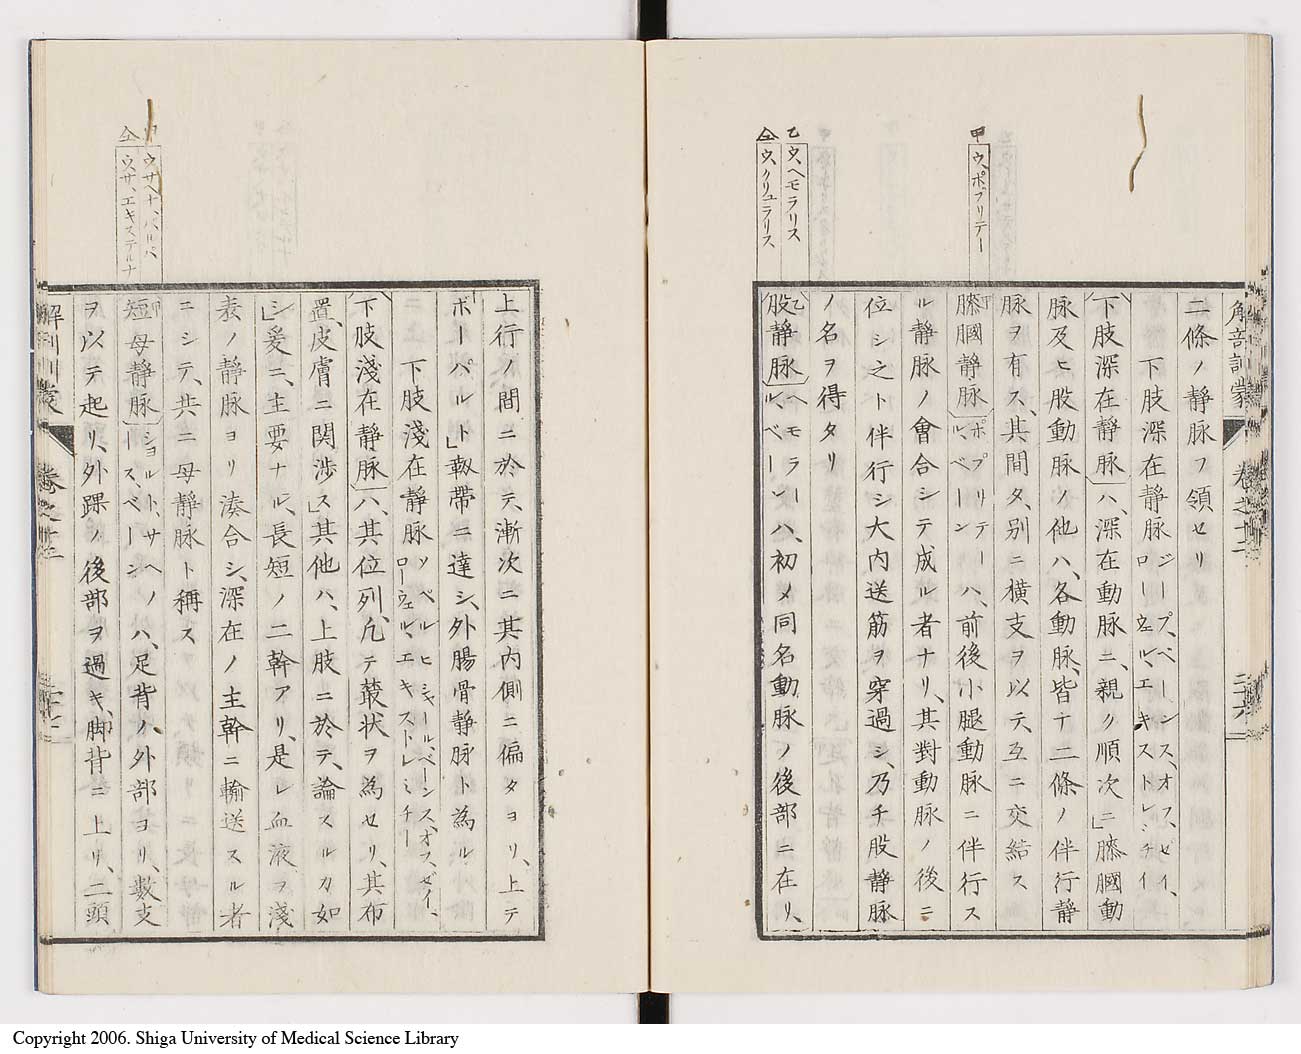 解剖訓蒙 卷之十二 二十六
甲 ウ、ポプリテー
乙 ウ、ヘモラリス
仝 ウ、クリュラリス
二條ノ靜脉ヲ領セリ
下肢深在靜脉 ジープ、ベーンス、オフ、ゼイ、
ローウェル、エキストレミチイ
下肢深在靜脉ハ、深在動脉ニ、親ク順次ニ」膝膕動
脉及ヒ股動脉ノ他ハ、各動脉、皆ナ二條ノ伴行靜
脉ヲ有ス、其間タ、別ニ橫支ヲ以テ、互ニ交結ス
膝膕靜脉 ポプリテー
ル、ベーン ハ、前後小腿動脉ニ伴行ス
ル靜脉ノ會合シテ成ル者ナリ、其對動脉ノ後ニ
位シ之ト伴行シ大內送筋ヲ穿過シ、乃チ股靜脉
ノ名ヲ得タリ
股靜脉 ヘモラー
ル、ベーン ハ、初メ同名動脉ノ後部ニ在リ、
甲 ウ、サヘナ、パルバ
仝 ウ、サ、エキステルナ
上行ノ間ニ於テ、漸次ニ其內側ニ偏タヨリ、上テ
ポーパルト」靱帶ニ達シ、外腸骨靜脉ト為ル
下肢淺在靜脉 ソペルヒシャールベーンスオフ、ゼイ、
ローウェル、エキストレミチー
下肢淺在靜脉ハ、其位列、凢テ叢狀ヲ為セリ、其布
置、皮膚ニ関渉ス」其他ハ、上肢ニ於テ、論スルカ如
シ」爰ニ、主要ナル、長短ノ二幹アリ、是レ血液ヲ淺
表ノ靜脉ヨリ湊合シ、深在ノ主幹ニ輸送スル者
ニシテ、共ニ母靜脉ト稱ス
短母靜脉 ショルト、サヘノ
ース、ベーン ハ、足背ノ外部ヨリ、數支
ヲ以テ起リ、外踝ノ後部ヲ過キ、脚背ニ上リ、二頭
解剖訓蒙 卷之十二
Copyright 2006. Shiga University of Medical Science Library